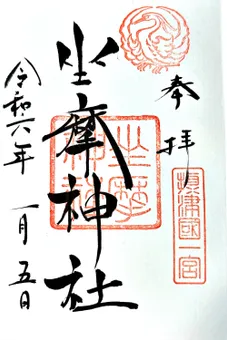 奉拝
摂津國一宮
坐摩神社
坐摩神社
令和六年
一月五日